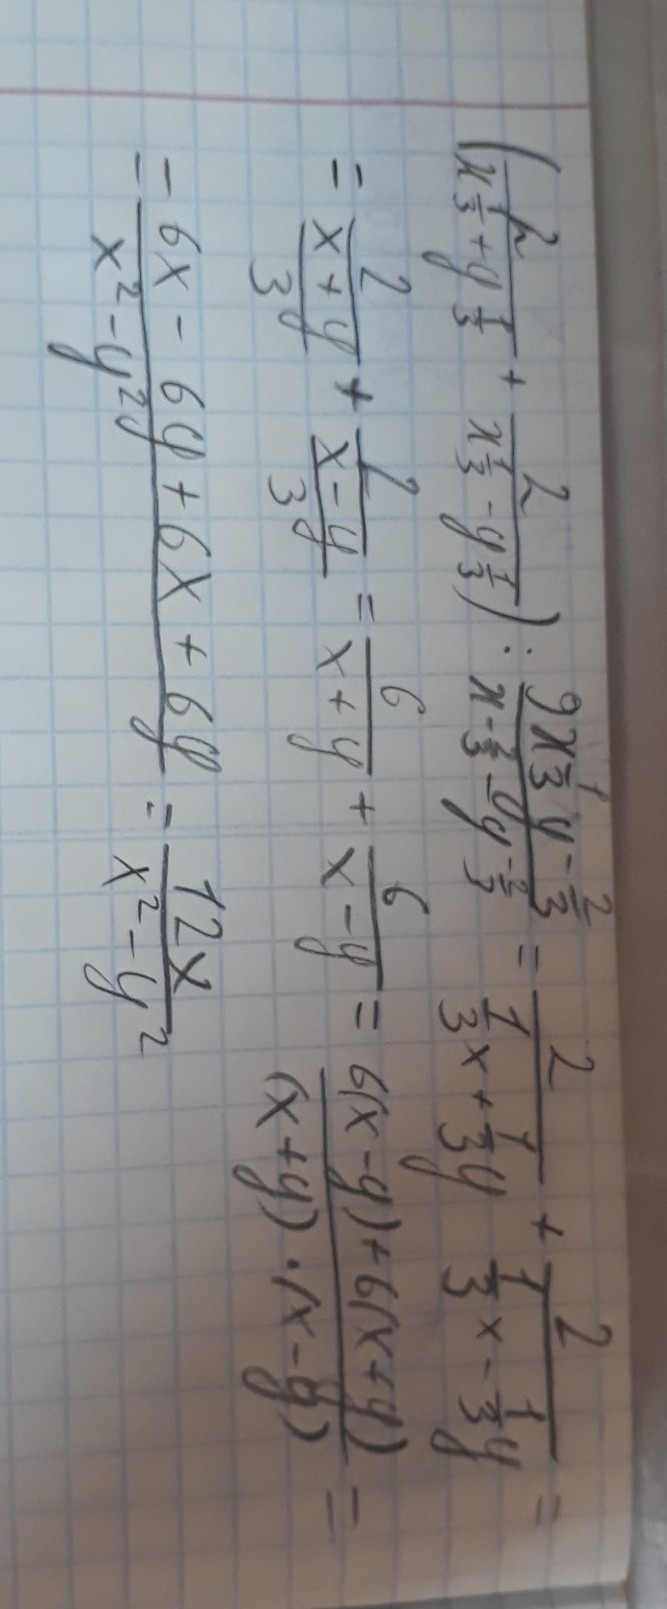 (2/(x^(1/3) + y^(1/3)) + 2/(x^(1/3) - y^(1/3))) : (9x^(1/3) y^(-2/3))/(x^(-2/3) - y^(-2/3)) = 2/(1/3 x + 1/3 y) + 2/(1/3 x - 1/3 y) =
= 2/((x + y)/3) + 2/((x - y)/3) = 6/(x + y) + 6/(x - y) = (6(x - y) + 6(x + y))/((x + y) · (x - y)) =
= (6x - 6y + 6x + 6y)/(x² - y²) = 12x/(x² - y²)